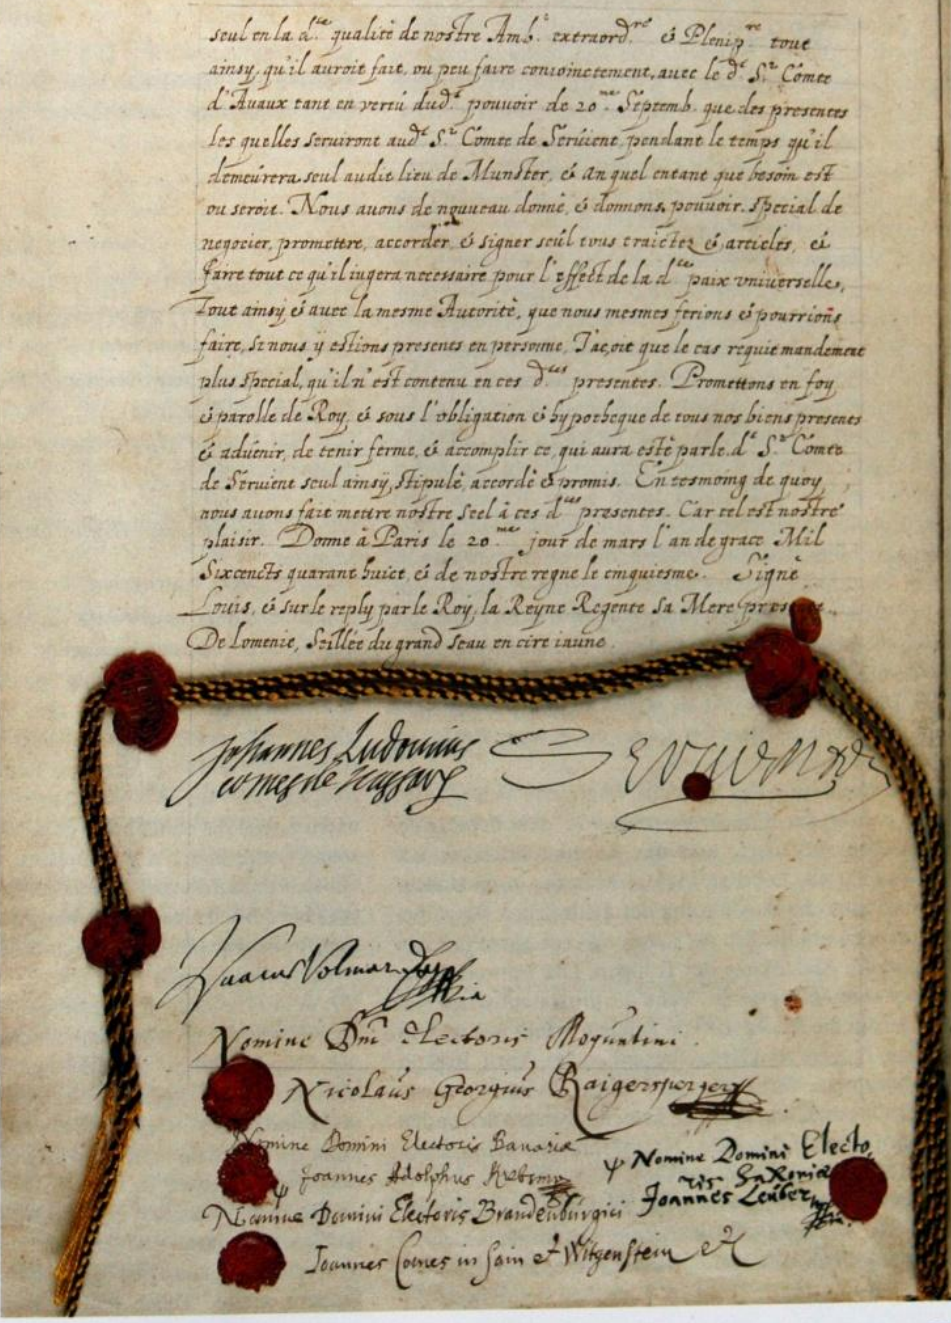 seul en la d.te qualité de nostre Amb.r extraord.re & Plenip.re tout
ainsy, qu'il auroit fait, ou peu faire conioinctement, avec le d.t S.r Comte
d'Avaux tant en vertu dud.t pouvoir de 20.me Septemb. que des presentes
les quelles serviront aud.t S.r Comte de Servient, pendant le temps qu'il
demeurera seul audit lieu de Munster, & an quel entant que besoin est
ou seroit. Nous avons de nouveau donné, & donnons, pouvoir, special de
negocier, promettre, accorder, & signer seul tous traictez & articles, &
faire tout ce qu'il iugera necessaire pour l'effect de la d.te paix vniverselle,
Tout ainsy & avec la mesme Autorité, que nous mesmes ferions & pourrions
faire, si nous ÿ estions presents en personne, Jaçoit que le cas requie mandement
plus special, qu'il n'est contenu en ces d.tes presentes. Promettons en foy
& parolle de Roy, & sous l'obligation & hypotheque de tous nos biens presents
& advenir, de tenir ferme, & accomplir ce, qui aura esté par le d.t S.r Comte
de Servient seul ainsy, stipulé, accordé & promis. En tesmoing de quoy
nous avons fait mettre nostre seel à ces d.tes presentes. Car tel est nostre
plaisir. Donné à Paris le 20.me jour de mars l'an de grace Mil
Sixcents quarant huict, & de nostre regne le cinquiesme. Signé
Louis, & sur le reply par le Roy, la Reyne Regente sa Mere
De Lomenie, Seillée du grand seau en cire iaune.
Johannes Ludovicus
comes de Nassau
Servient
Isaacus Volmar
Nomine Dni Electoris Moguntini.
Nicolaus Georgius Raigersperger
Nomine Domini Electoris Bavariae
Joannes Adolphus Krebs
Nomine Domini Electo
ris Saxoniae
Joannes Leuber
Nomine Domini Electoris Brandenburgici
Joannes Comes in Sain et Witgenstein